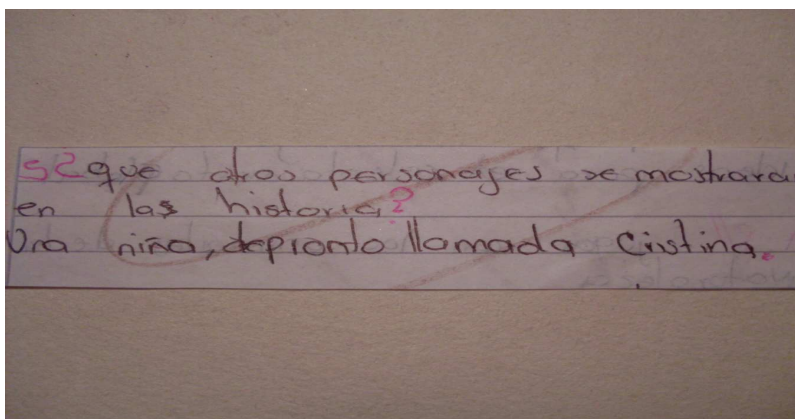 5¿que otros personajes se mostrara
en las historia?
Una niña, depronto llamada Cistina.